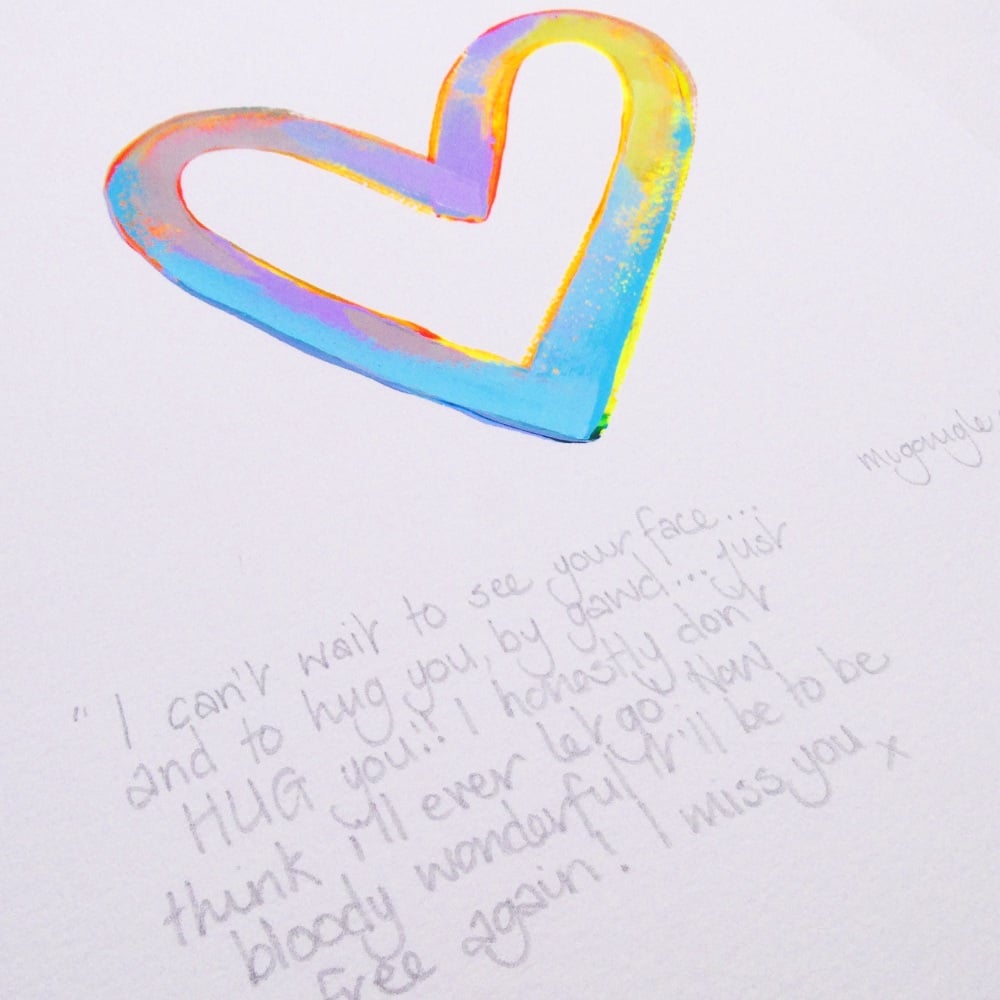 " I can't wait to see your face...
and to hug you, by gawd... just
HUG you!! I honestly don't
think i'll ever let go. How
bloody wonderful it'll be to be
free again! I miss you x